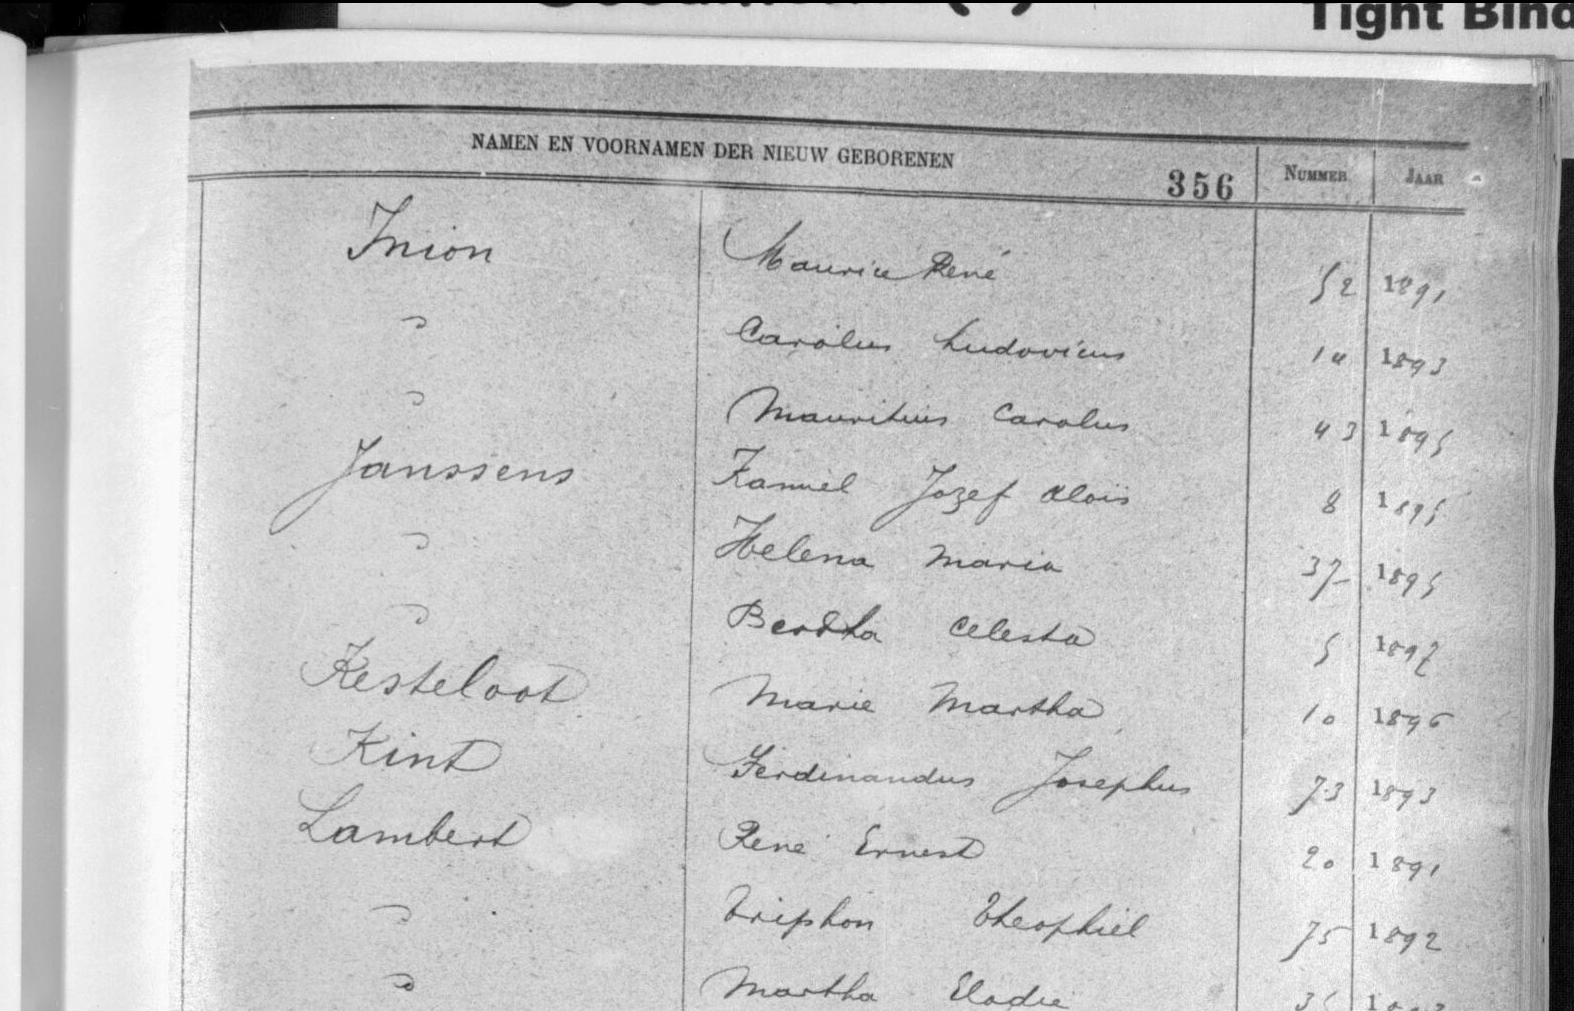 Tight Bind
NAMEN EN VOORNAMEN DER NIEUW GEBORENEN 356 NUMMER JAAR
Inion Maurice René 52 1891
" Carolus Ludovicus 14 1893
" Mauritius Carolus 43 1895
Janssens Kamiel Jozef Aloïs 8 1895
" Helena Maria 37 1895
" Bertha Celesta 5 1897
Kesteloot Marie Martha 10 1896
Kint Ferdinandus Josephus 73 1893
Lambert René Ernest 20 1891
" Triphon Theophiel 75 1892
" Martha Elodie